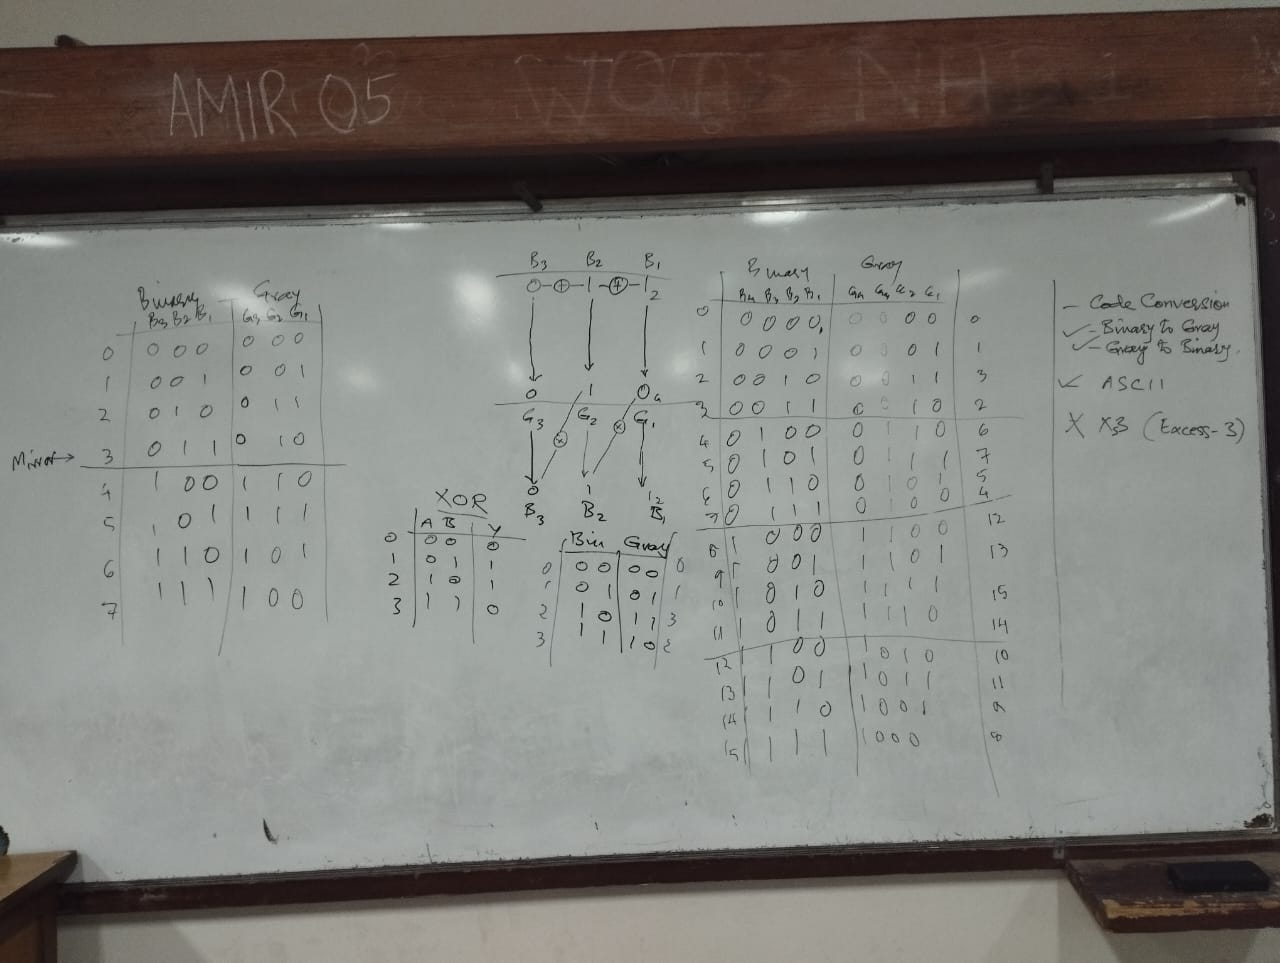 AMIR 05
Binary Gray
B3 B2 B1 G3 G2 G1
0 0 0 0 0 0 0
1 0 0 1 0 0 1
2 0 1 0 0 1 1
Mirror → 3 0 1 1 0 1 0
4 1 0 0 1 1 0
5 1 0 1 1 1 1
6 1 1 0 1 0 1
7 1 1 1 1 0 0
B3 B2 B1
0 ⊕ 1 ⊕ 1 2
0 1 0 G
G3 G2 G1
0 1 1 2
B3 B2 B1
XOR
A B Y
0 0 0 0
1 0 1 1
2 1 0 1
3 1 1 0
Bin Gray
0 0 0 0 0 0
1 0 1 0 1 1
2 1 0 1 1 3
3 1 1 1 0 2
Binary Gray
B4 B3 B2 B1 G4 G3 G2 G1
0 0 0 0 0 0 0 0 0 0
1 0 0 0 1 0 0 0 1 1
2 0 0 1 0 0 0 1 1 3
3 0 0 1 1 0 0 1 0 2
4 0 1 0 0 0 1 1 0 6
5 0 1 0 1 0 1 1 1 7
6 0 1 1 0 0 1 0 1 5
7 0 1 1 1 0 1 0 0 4
8 1 0 0 0 1 1 0 0 12
9 1 0 0 1 1 1 0 1 13
10 1 0 1 0 1 1 1 1 15
11 1 0 1 1 1 1 1 0 14
12 1 1 0 0 1 0 1 0 10
13 1 1 0 1 1 0 1 1 11
14 1 1 1 0 1 0 0 1 9
15 1 1 1 1 1 0 0 0 8
- Code Conversion
✓ - Binary to Gray
✓ - Gray to Binary.
✓ ASCII
X XS3 (Excess-3)